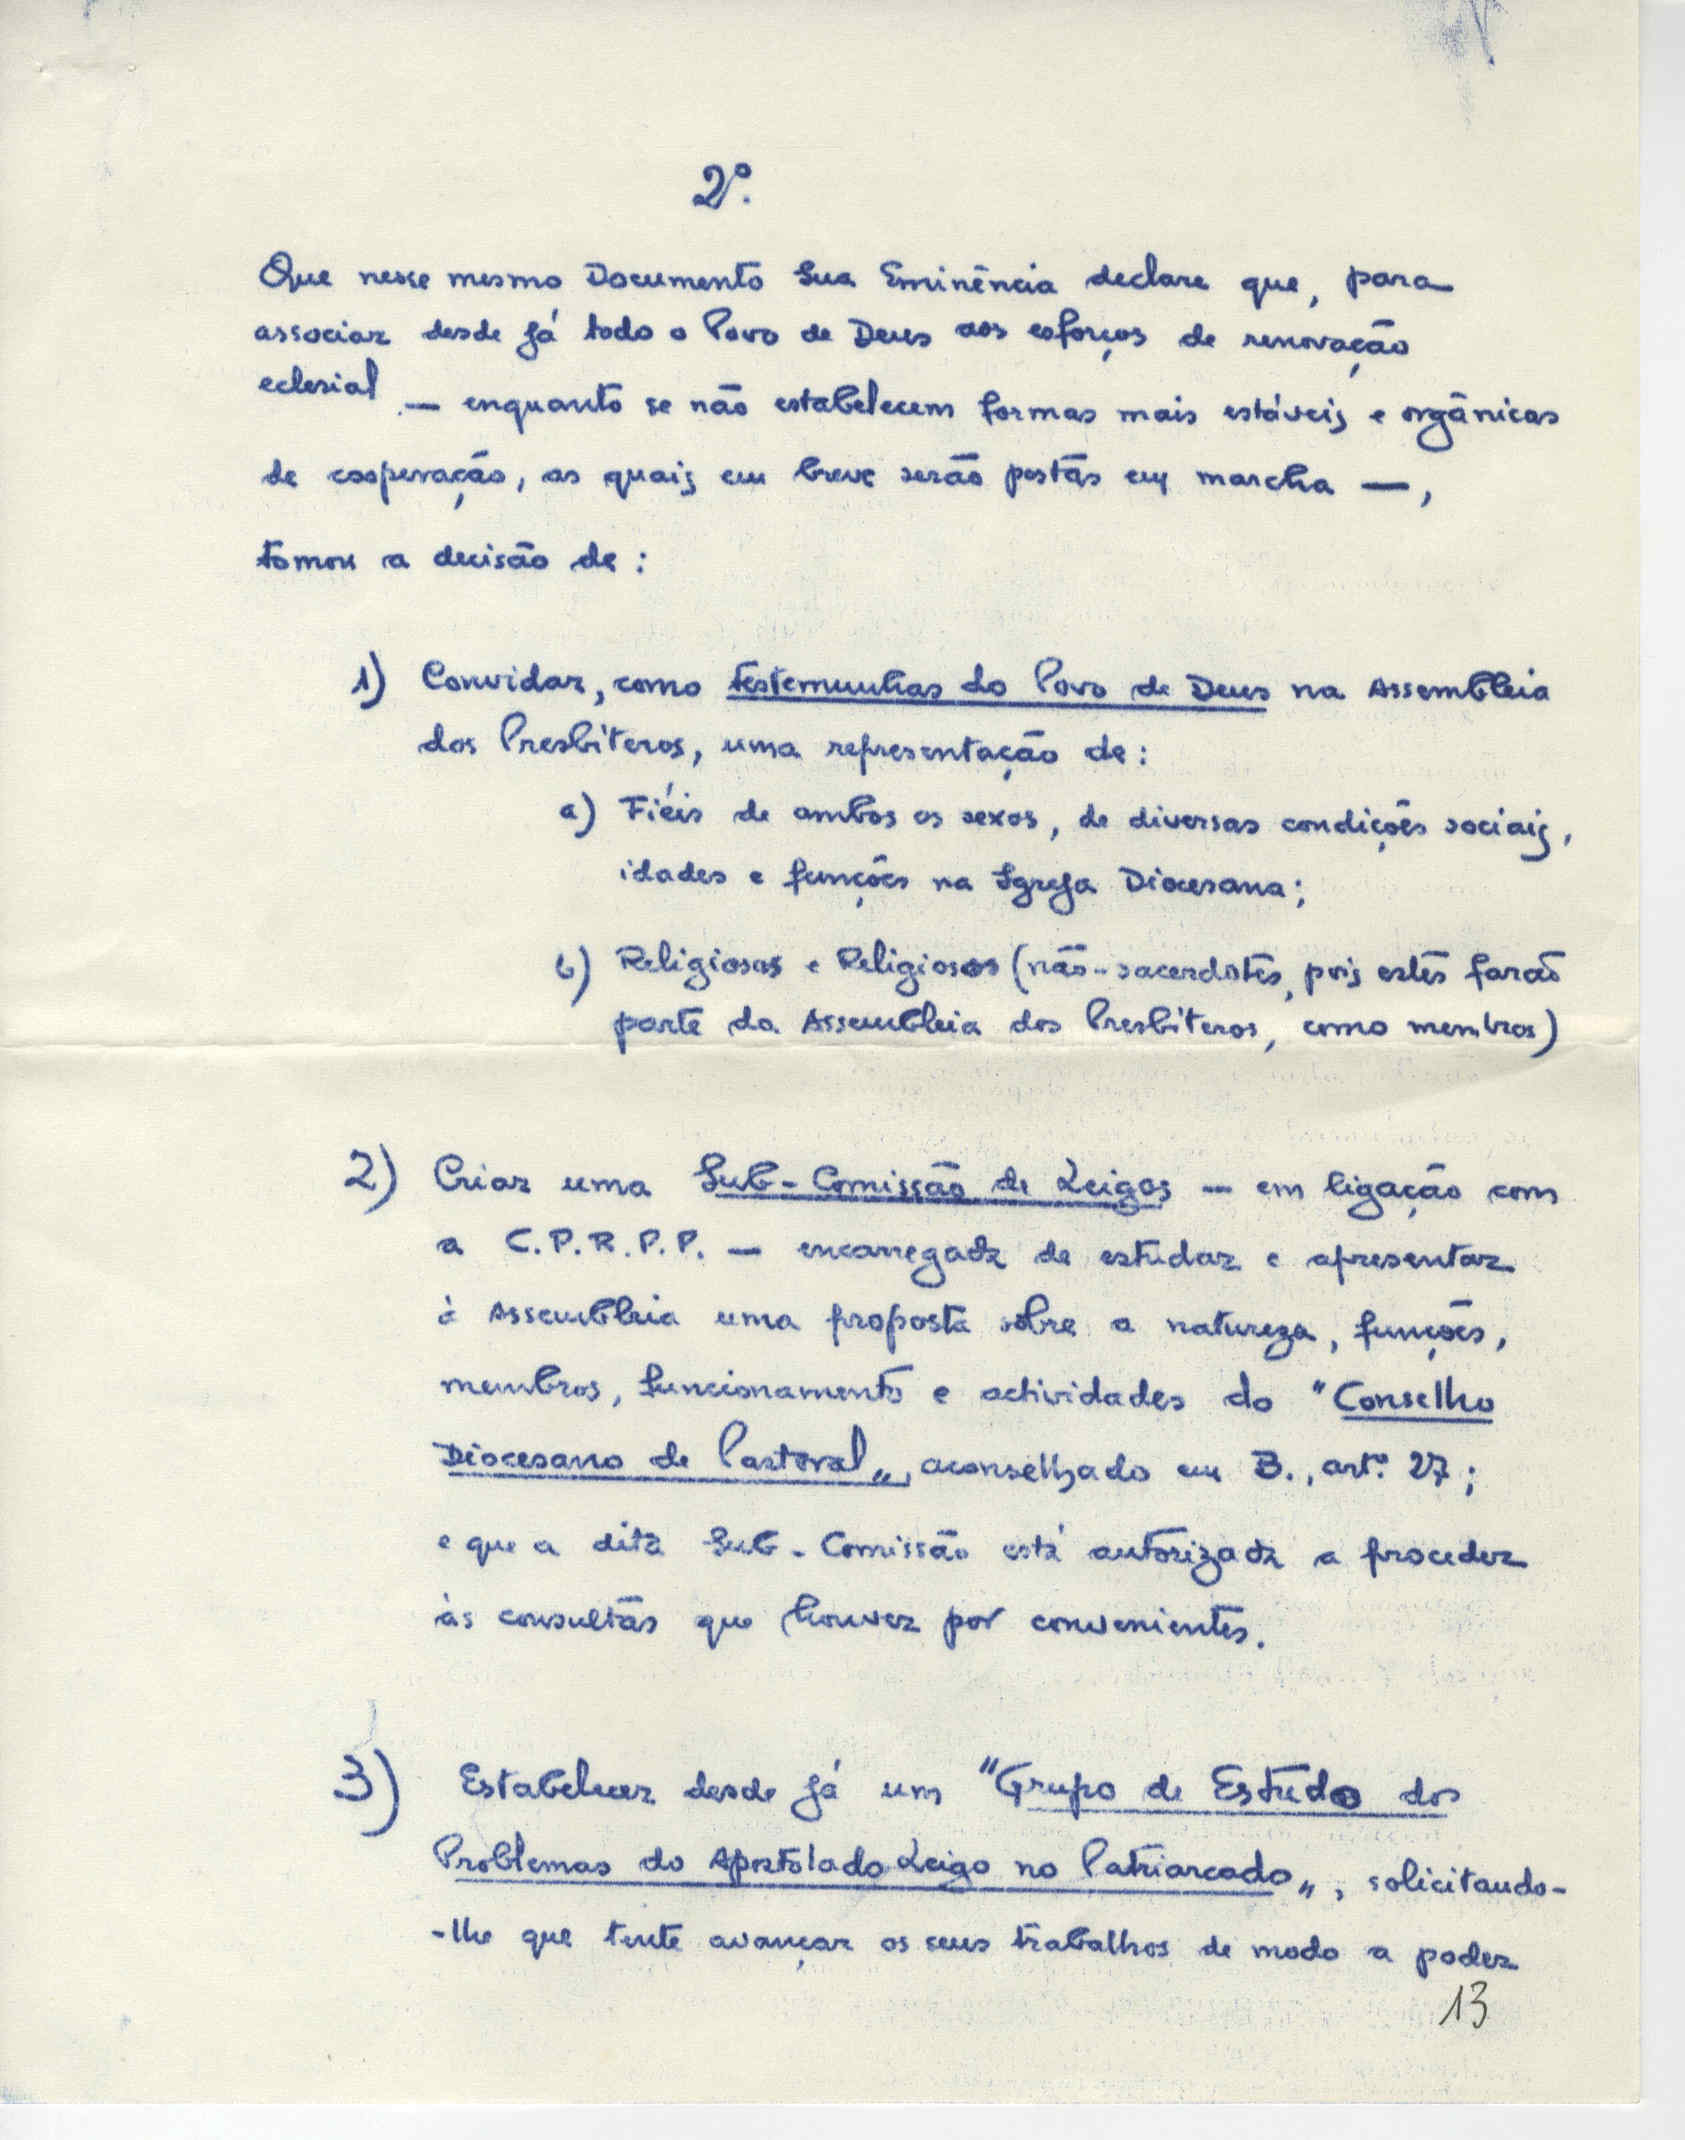 2º.
Que nesse mesmo Documento Sua Eminência declare que, para
associar desde já todo o Povo de Deus aos esforços de renovação
eclesial — enquanto se não estabelecem formas mais estáveis e orgânicas
de cooperação, as quais em breve serão postas em marcha —,
tomou a decisão de:
1) Convidar, como testemunhas do Povo de Deus na Assembleia
dos Presbíteros, uma representação de:
a) Fiéis de ambos os sexos, de diversas condições sociais,
idades e funções na Igreja Diocesana;
b) Religiosas e Religiosos (não-sacerdotes, pois estes farão
parte da Assembleia dos Presbíteros, como membros)
2) Criar uma Sub-Comissão de Leigos — em ligação com
a C.P.R.P.P. — encarregada de estudar e apresentar
à Assembleia uma proposta sobre a natureza, funções,
membros, funcionamento e actividades do "Conselho
Diocesano de Pastoral„, aconselhado em B., artº. 27;
e que a dita Sub-Comissão está autorizada a proceder
às consultas que houver por convenientes.
3) Estabelecer desde já um "Grupo de Estudo dos
Problemas do Apostolado Leigo no Patriarcado„, solicitando-
-lhe que tente avançar os seus trabalhos de modo a poder
13